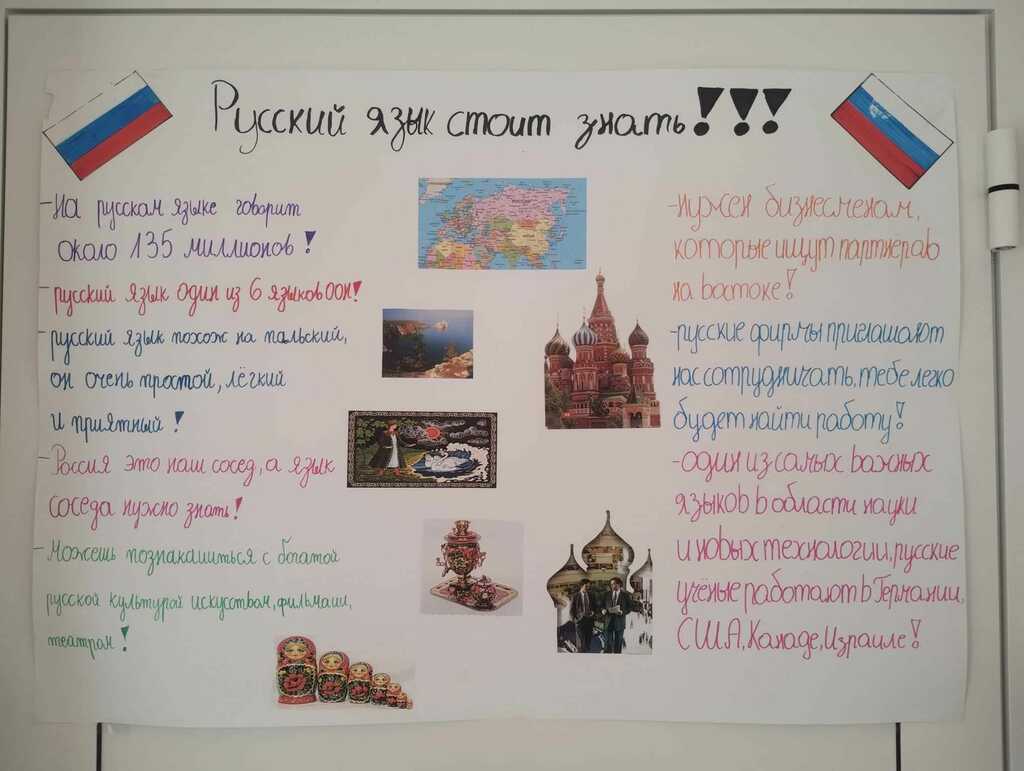 Русский язык стоит знать!!!
-На русском языке говорит
около 135 миллионов!
-русский язык один из 6 языков ООН!
-русский язык похож на польский,
он очень простой, лёгкий
и приятный!
-Россия это наш сосед, а язык
соседа нужно знать!
-Можешь познакашиться с богатой
русской культурой искусством, фильмаши,
театром!
-нужен бизнесменам,
которые ищут партнёров
на востоке!
-русские фирмы приглашают
нас сотрудничать, тебе легко
будет найти работу!
-один из самых важных
языков в области науки
и новых технологии, русские
учёные работают в Германии,
США, Канаде, Израиле!